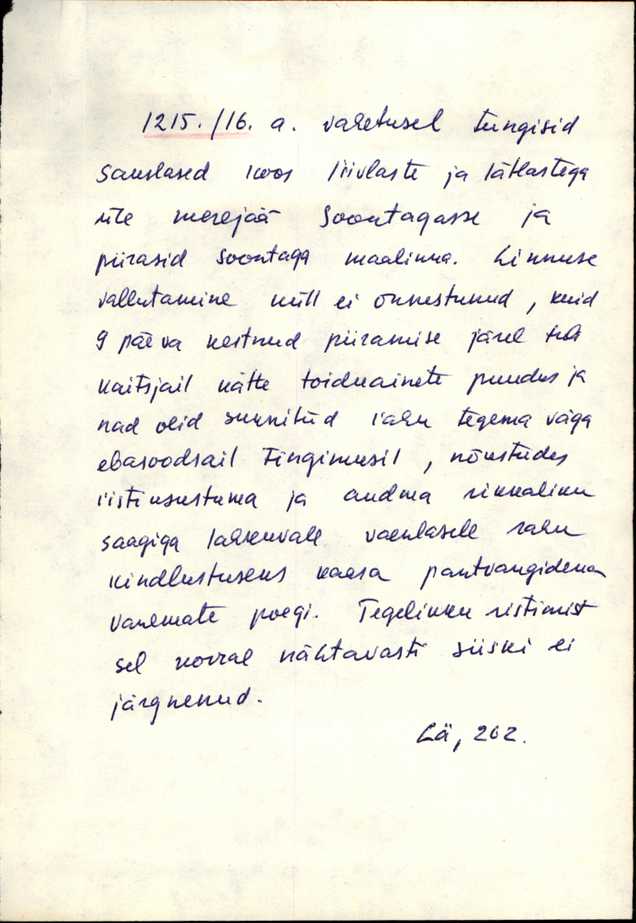 1215./16. a. vahetusel tungisid
sakslased koos liivlaste ja lätlastega
üle merejää Soontagasse ja
piirasid Soontaga maalinna. Linnuse
vallutamine küll ei õnnestunud, kuid
9 päeva kestnud piiramise järel tuli
kaitsjail kätte toiduainete puudus ja
nad olid sunnitud rahu tegema väga
ebasoodsail tingimusil, nõustudes
ristiusustuma ja andma rikkaliku
saagiga lahkuvale vaenlasele rahu
kindlustuseks kaasa pantvangidena
vanemate poegi. Tegelikku ristimist
sel korral nähtavasti siiski ei
järgnenud.
Lä, 202.